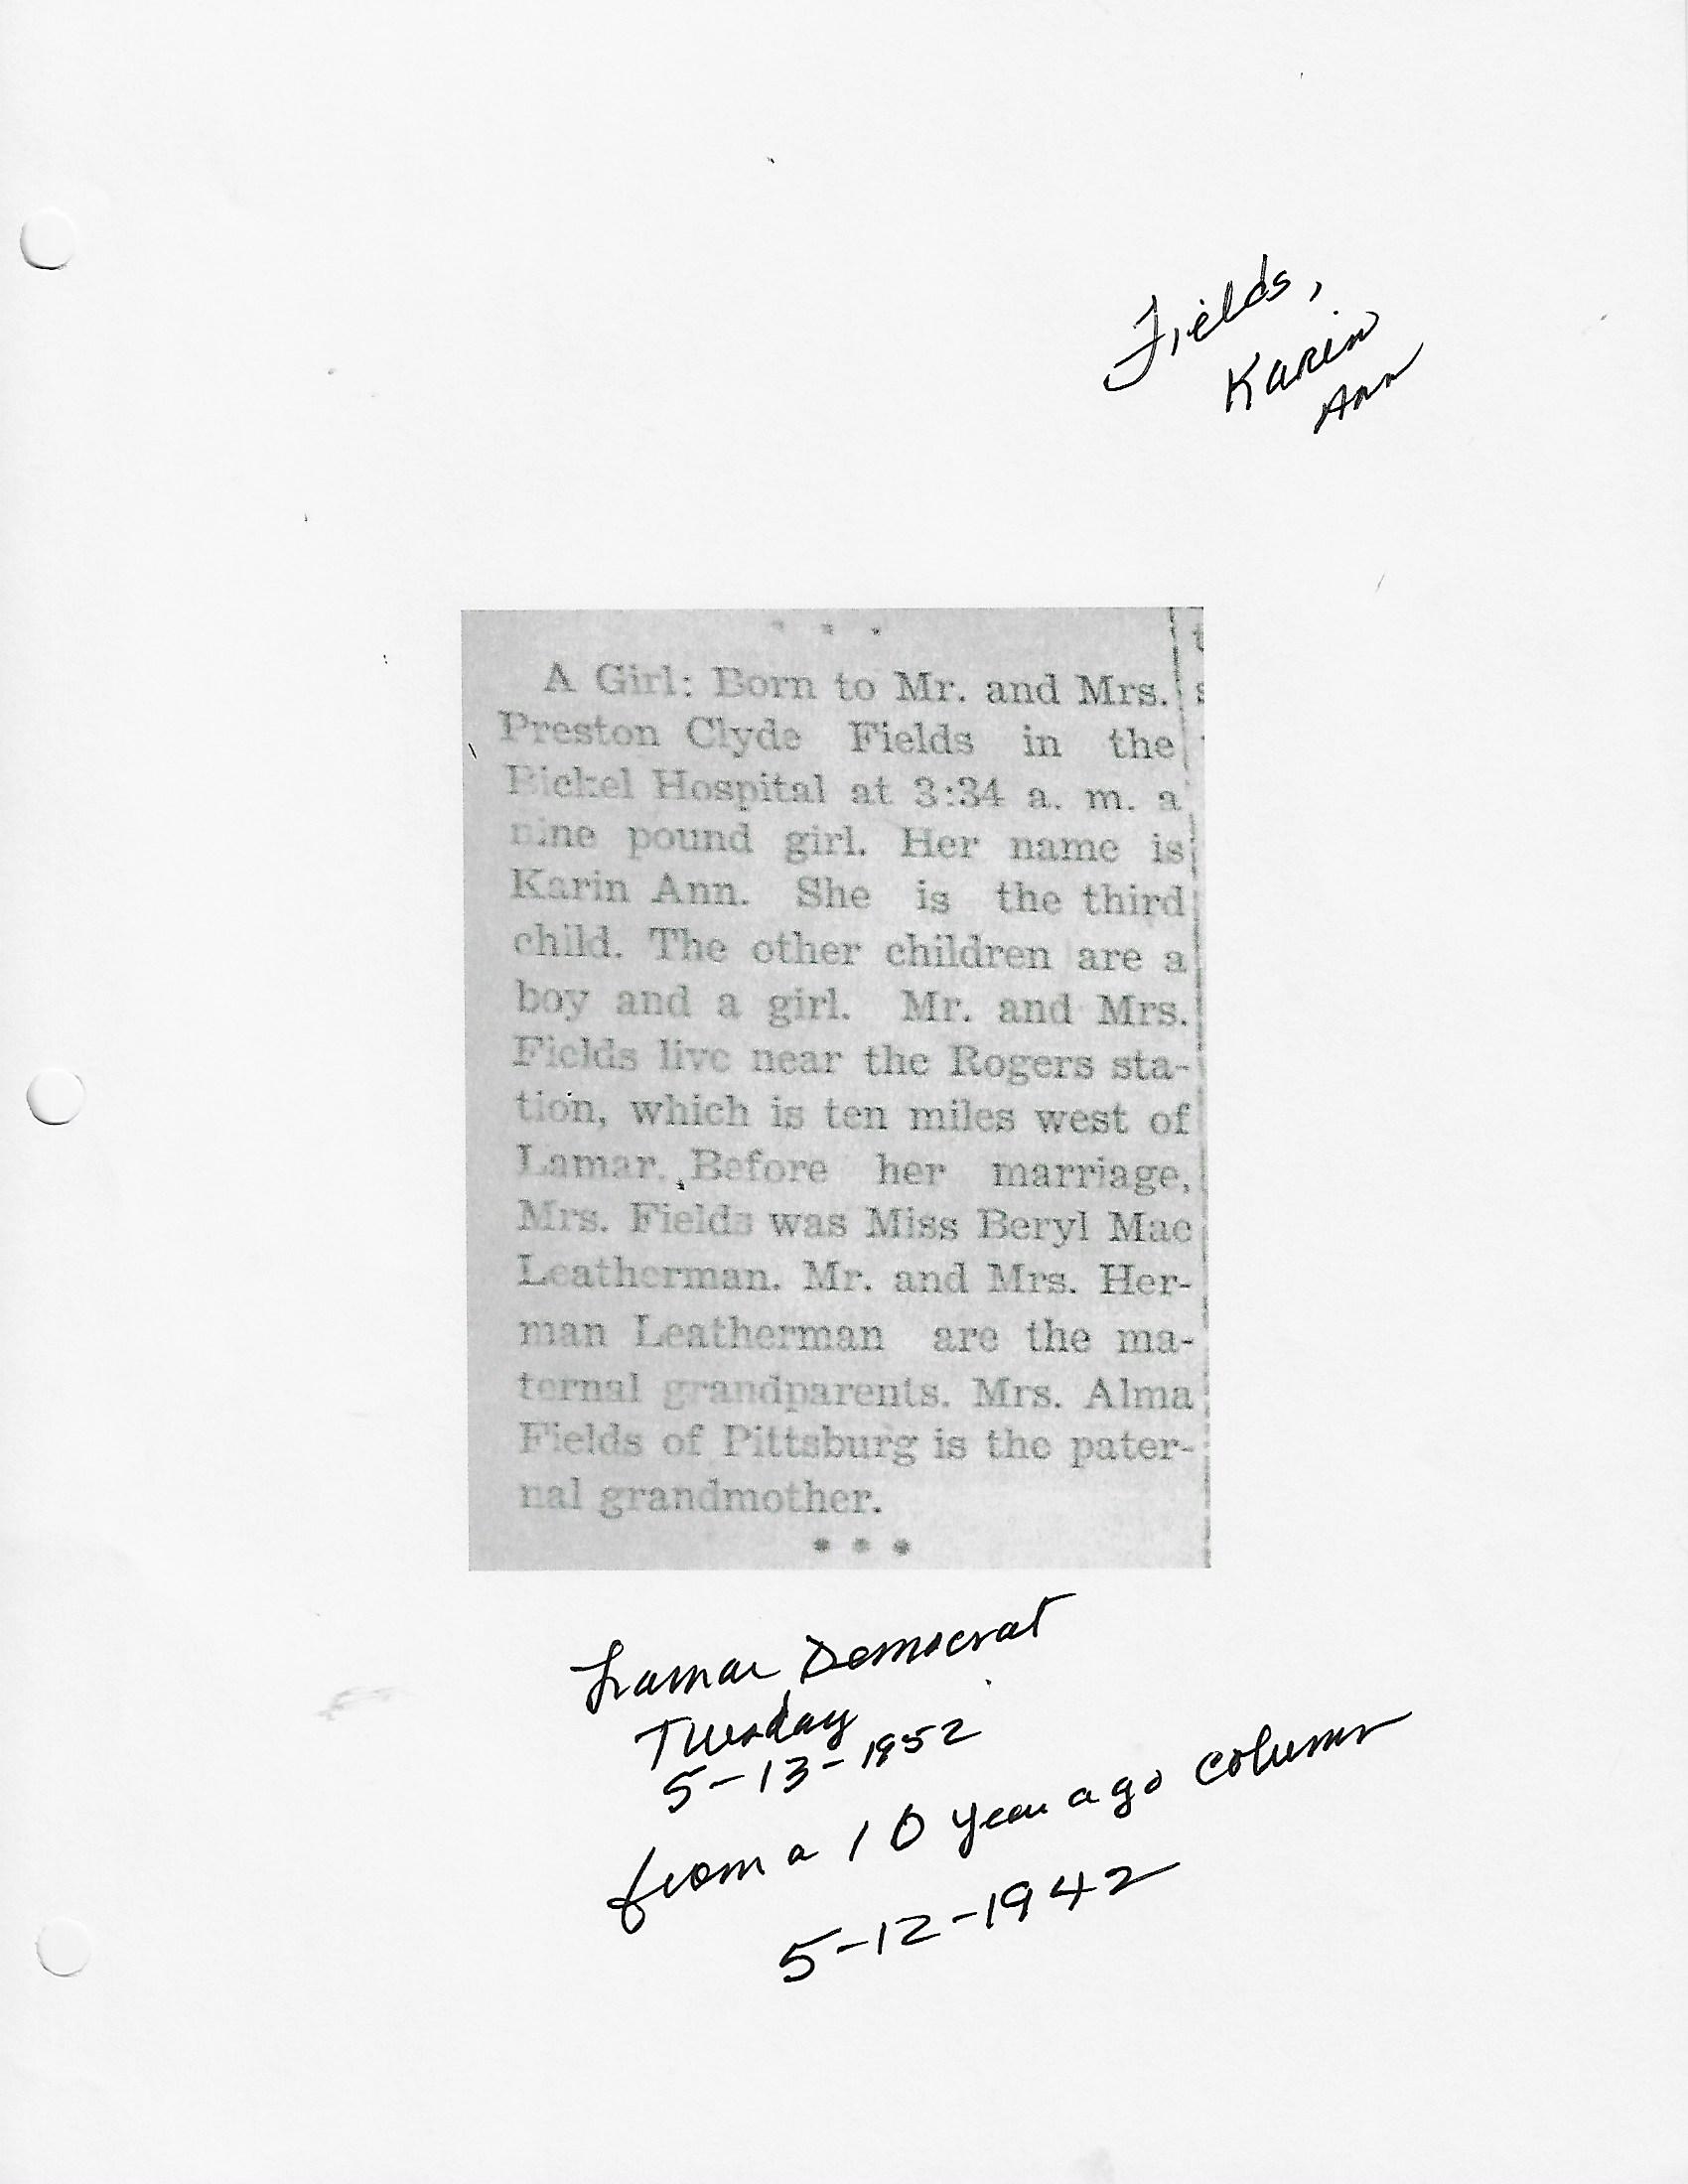 Fields,
Karin
Ann
A Girl: Born to Mr. and Mrs.
Preston Clyde Fields in the
Bickel Hospital at 3:34 a. m. a
nine pound girl. Her name is
Karin Ann. She is the third
child. The other children are a
boy and a girl. Mr. and Mrs.
Fields live near the Rogers sta-
tion, which is ten miles west of
Lamar. Before her marriage,
Mrs. Fields was Miss Beryl Mae
Leatherman. Mr. and Mrs. Her-
man Leatherman are the ma-
ternal grandparents. Mrs. Alma
Fields of Pittsburg is the pater-
nal grandmother.
Lamar Democrat
Tuesday
5-13-1952
from a 10 year ago column
5-12-1942